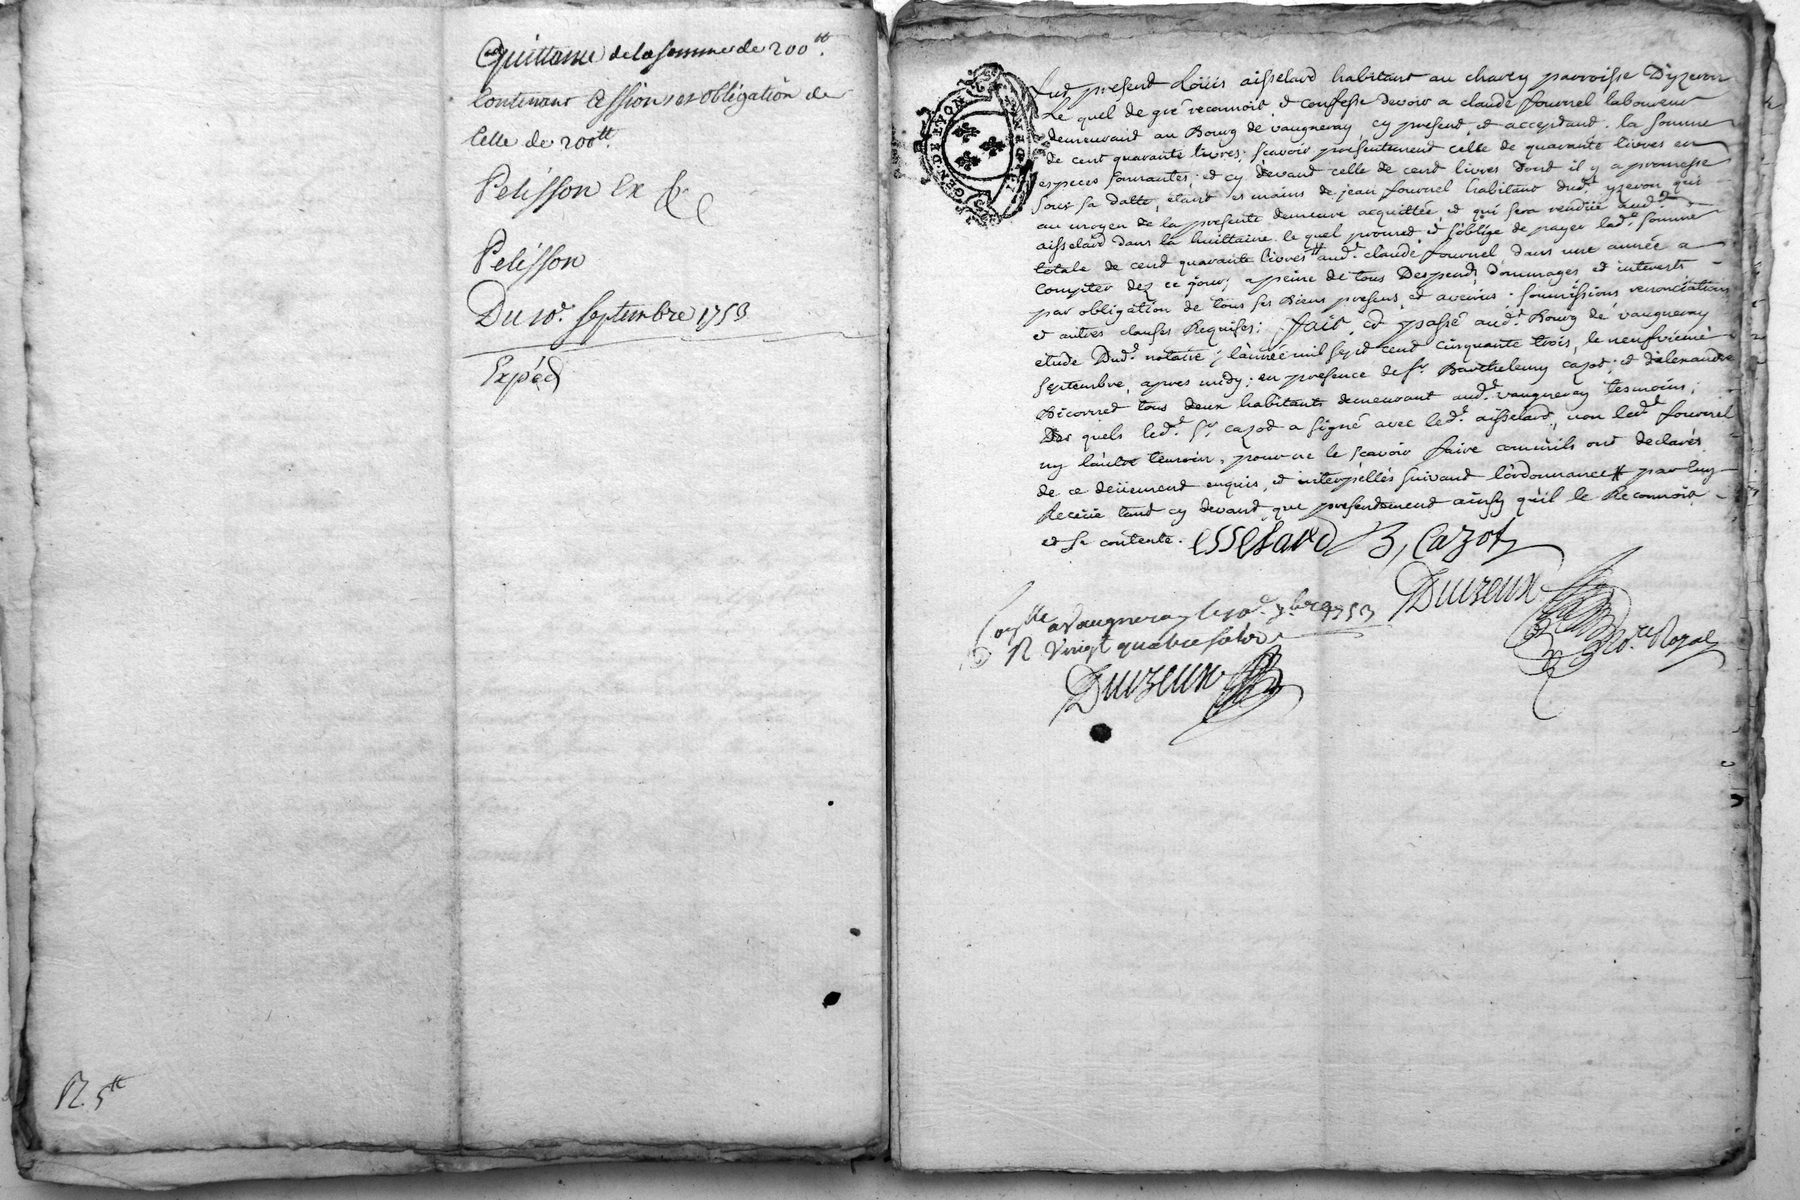 Quittance de la somme de 200ᵗᵗ.
Contenant Cession et obligation de
Celle de 200ᵗᵗ.
Pelisson Ex
Pelisson
Du 10ᵉ. Septembre 1753
Expéd
R 5ᵗᵗ
GEN. DE LYON
fut present Loüis aisselard habitant au chavey parroisse D'yzeron
Le quel de gré reconnoit et confesse devoir a claude fournel laboureur
demeurant au Bourg de vaugneray, cy present, et acceptant. la somme
de cent quarante livres; scavoir presentement celle de quarante livres en
especes sonnantes; et cy devant celle de cent livres dont il y a promesse
sous sa datte, etant es mains de jean fournel habitant dud.ᵗ yzeron qui
au moyen de la presente demeure acquittée, et qui sera rendüe aud.ᵗ
aisselard dans la huittaine. le quel promet et s'oblige de payer lad.ᵉ somme
totale de cent quarante livres aud.ᵗ claude fournel, dans une année a
compter dez ce jour, a peine de tous Despends, dommages et interests
par obligation de tous ses Biens presens, et avenirs. soumissions, renonciations
et autres clauses Requises; fait et passé aud.ᵗ Bourg de vaugneray
etude Dud.ᵗ notaire; l'année mil sept cent cinquante trois, le neufvieme
septembre, apres midy; en presence de sʳ Barthelemy cazot; et d'alexandre
Bicornet tous deux habitants demeurant aud.ᵗ vaugneray tesmoins;
Des quels led.ᵗ sʳ cazot a signé avec led.ᵗ aisselard, non led.ᵗ fournel
ny l'autre temoin, pour ne le scavoir faire comm'ils ont declarés
de ce deüement enquis, et interpellés suivant l'ordonnance par luy
Receüe tant cy devant, que presentement ainsy qu'il le Reconnoit
et se contente. esselard B, Cazot
Duizeux
No.ʳᵉ Royal
Con.ˡˡᵉ a vaugneray le 10ᵉ. 7bre 1753
R vingt quatre sols
Duizeux